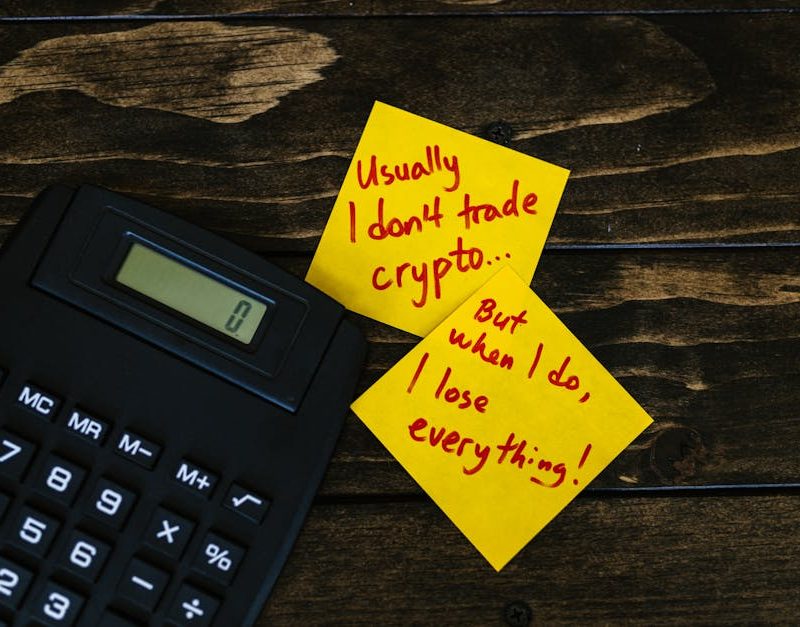 Usually
I don't trade
crypto...
But
when I do,
I lose
everything!
0
MC
MR
M−
M+
√
7
8
9
×
%
5
6
−
÷
2
3